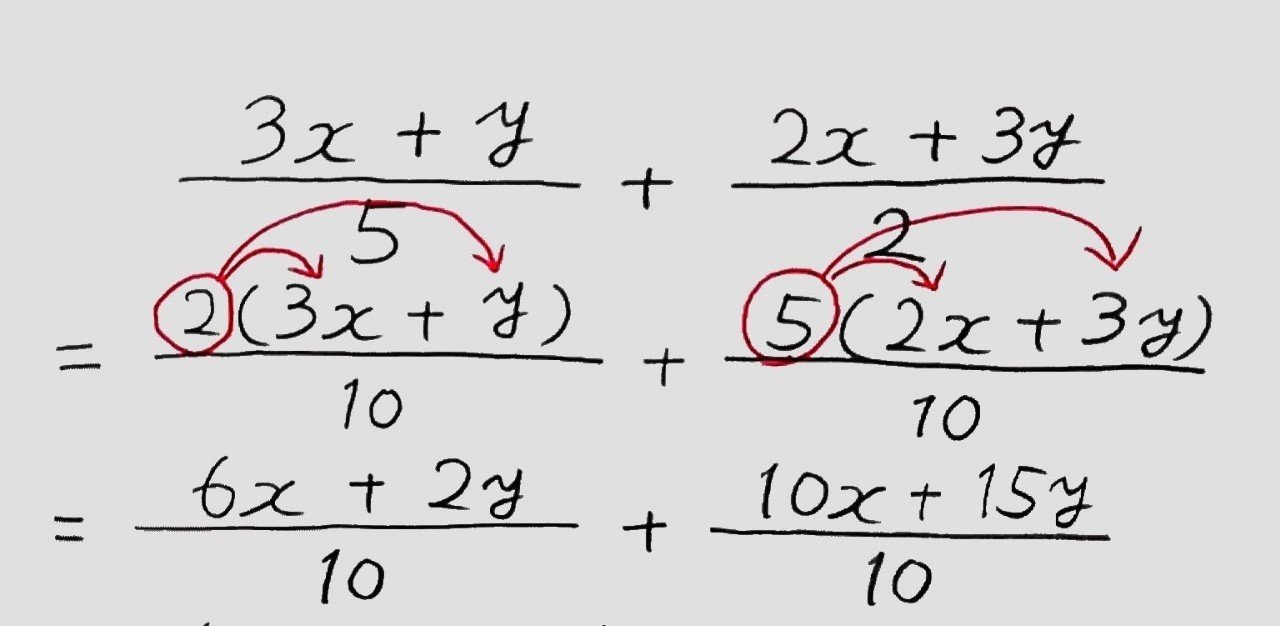 (3x + y)/5 + (2x + 3y)/2
= 2(3x + y)/10 + 5(2x + 3y)/10
= (6x + 2y)/10 + (10x + 15y)/10